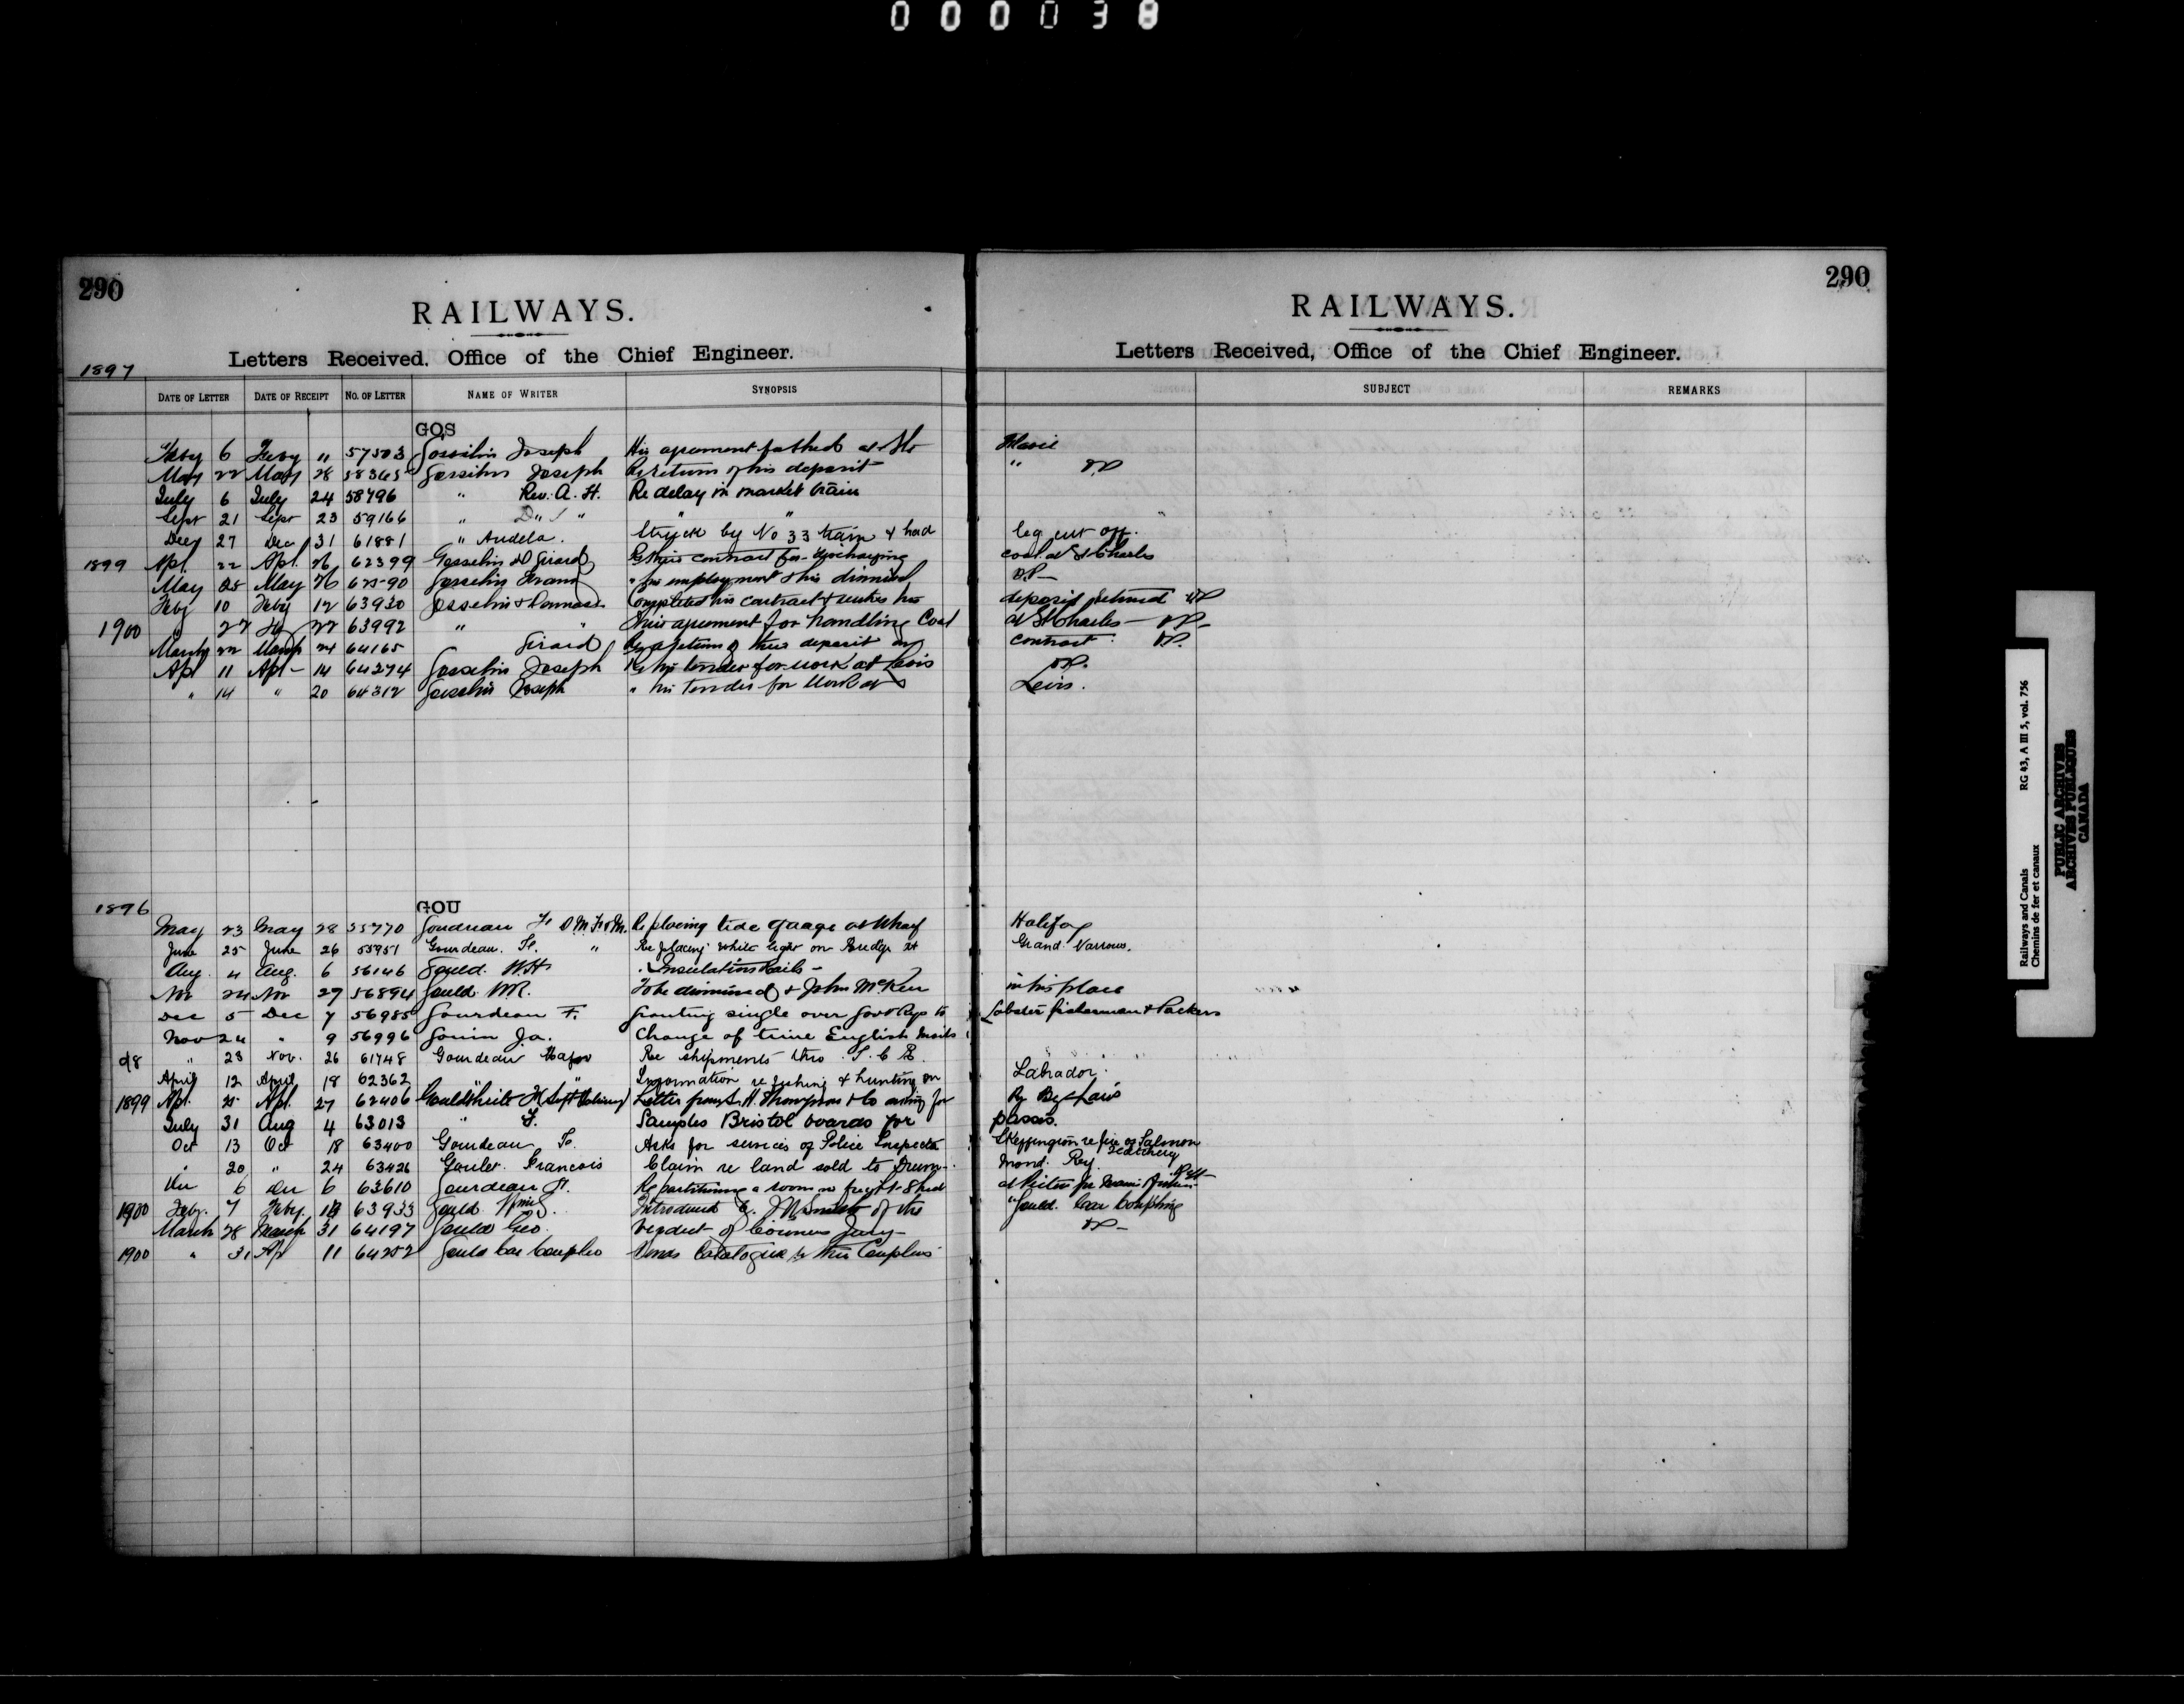 000038
290
RAILWAYS.
Letters Received, Office of the Chief Engineer.
1897
DATE OF LETTER DATE OF RECEIPT NO. OF LETTER NAME OF WRITER SYNOPSIS
GOS
Feby 6 Feby 11 57503 Gosselin Joseph His agreement at Ste
May 22 May 28 58365 Gosselin Joseph Re return of his deposit
July 6 July 24 58796 " Rev. A. H. Re delay in market train
Sept 21 Sept 23 59166 " " "
Decy 27 Dec 31 61881 " Audela. Struck by No 33 train & had
1899 Apl. 22 Apl. 26 62399 Gosselin & Girard Re their contract for discharging
May 25 May 26 Gosselin " his employment & his dismissal
Feby 10 Feby 12 63930 Gosselin & Completed his contract & wishes his
1900 27 63992 " " agreement for handling Coal
March 22 March 24 64165 Girard Re return of their deposit on
Apl 11 Apl - 14 64274 Gosselin Joseph Re his tender for work at Levis
" 14 " 20 64312 Gosselin Joseph " his Tender for Work at
1896
GOU
May 23 May 28 55770 Gourdeau F. D.M. F. & M. Re placing tide guage at Wharf
June 25 June 26 55951 Gourdeau. F. " Re placing white light on Bridge at
Aug. 4 Aug. 6 56146 Gould. W.H. Insulation Rails -
Nov 24 Nov 27 56894 Gould To be dismissed & John McKen
Dec 5 Dec 7 56985 Gourdeau F. Granting single over Govt Rys to
Nov 24 " 9 56996 Gouin Ja. Change of time English Mails
98 " 23 Nov. 26 61748 Gourdeau Major Re shipments thro I.C.R.
April 12 April 18 62362 " " Information re fishing & hunting on
1899 Apl. 25 Apl. 27 62406 Letter from Thompson & Co asking for
July 31 Aug 4 63013 " F. Samples Bristol boards for
Oct 13 Oct 18 63400 Gourdeau F. Asks for services of Police Inspector
" 20 " 24 63426 Goulet. Francois Claim re land sold to Drum-
Dec 6 Dec 6 63610 Gourdeau F. Re partitioning a room in freight Shed
1900 Feby. 7 Feby. 63933 Gould Introduced J.M. Smith of the
March 28 March 31 64197 Gould Geo. Verdict of Coroners Jury -
1900 " 31 Ap 11 64252 Gould Car Coupler Sends Catalogue of their Couplers
290
RAILWAYS.
Letters Received, Office of the Chief Engineer.
SUBJECT REMARKS
Marie
"
leg cut off.
coal at St Charles
deposit returned
at St Charles -
contract.
Levis.
Halifax
Grand Narrows.
in his place
Lobster fisherman & Packers
Labrador.
passes.
Skeffington re fine of Salmon
mond. Ry.
at Pictou for
"Gould. Car Coupling
Railways and Canals RG 43, A III 5, vol. 756
Chemins de fer et canaux
PUBLIC ARCHIVES
ARCHIVES PUBLIQUES
CANADA